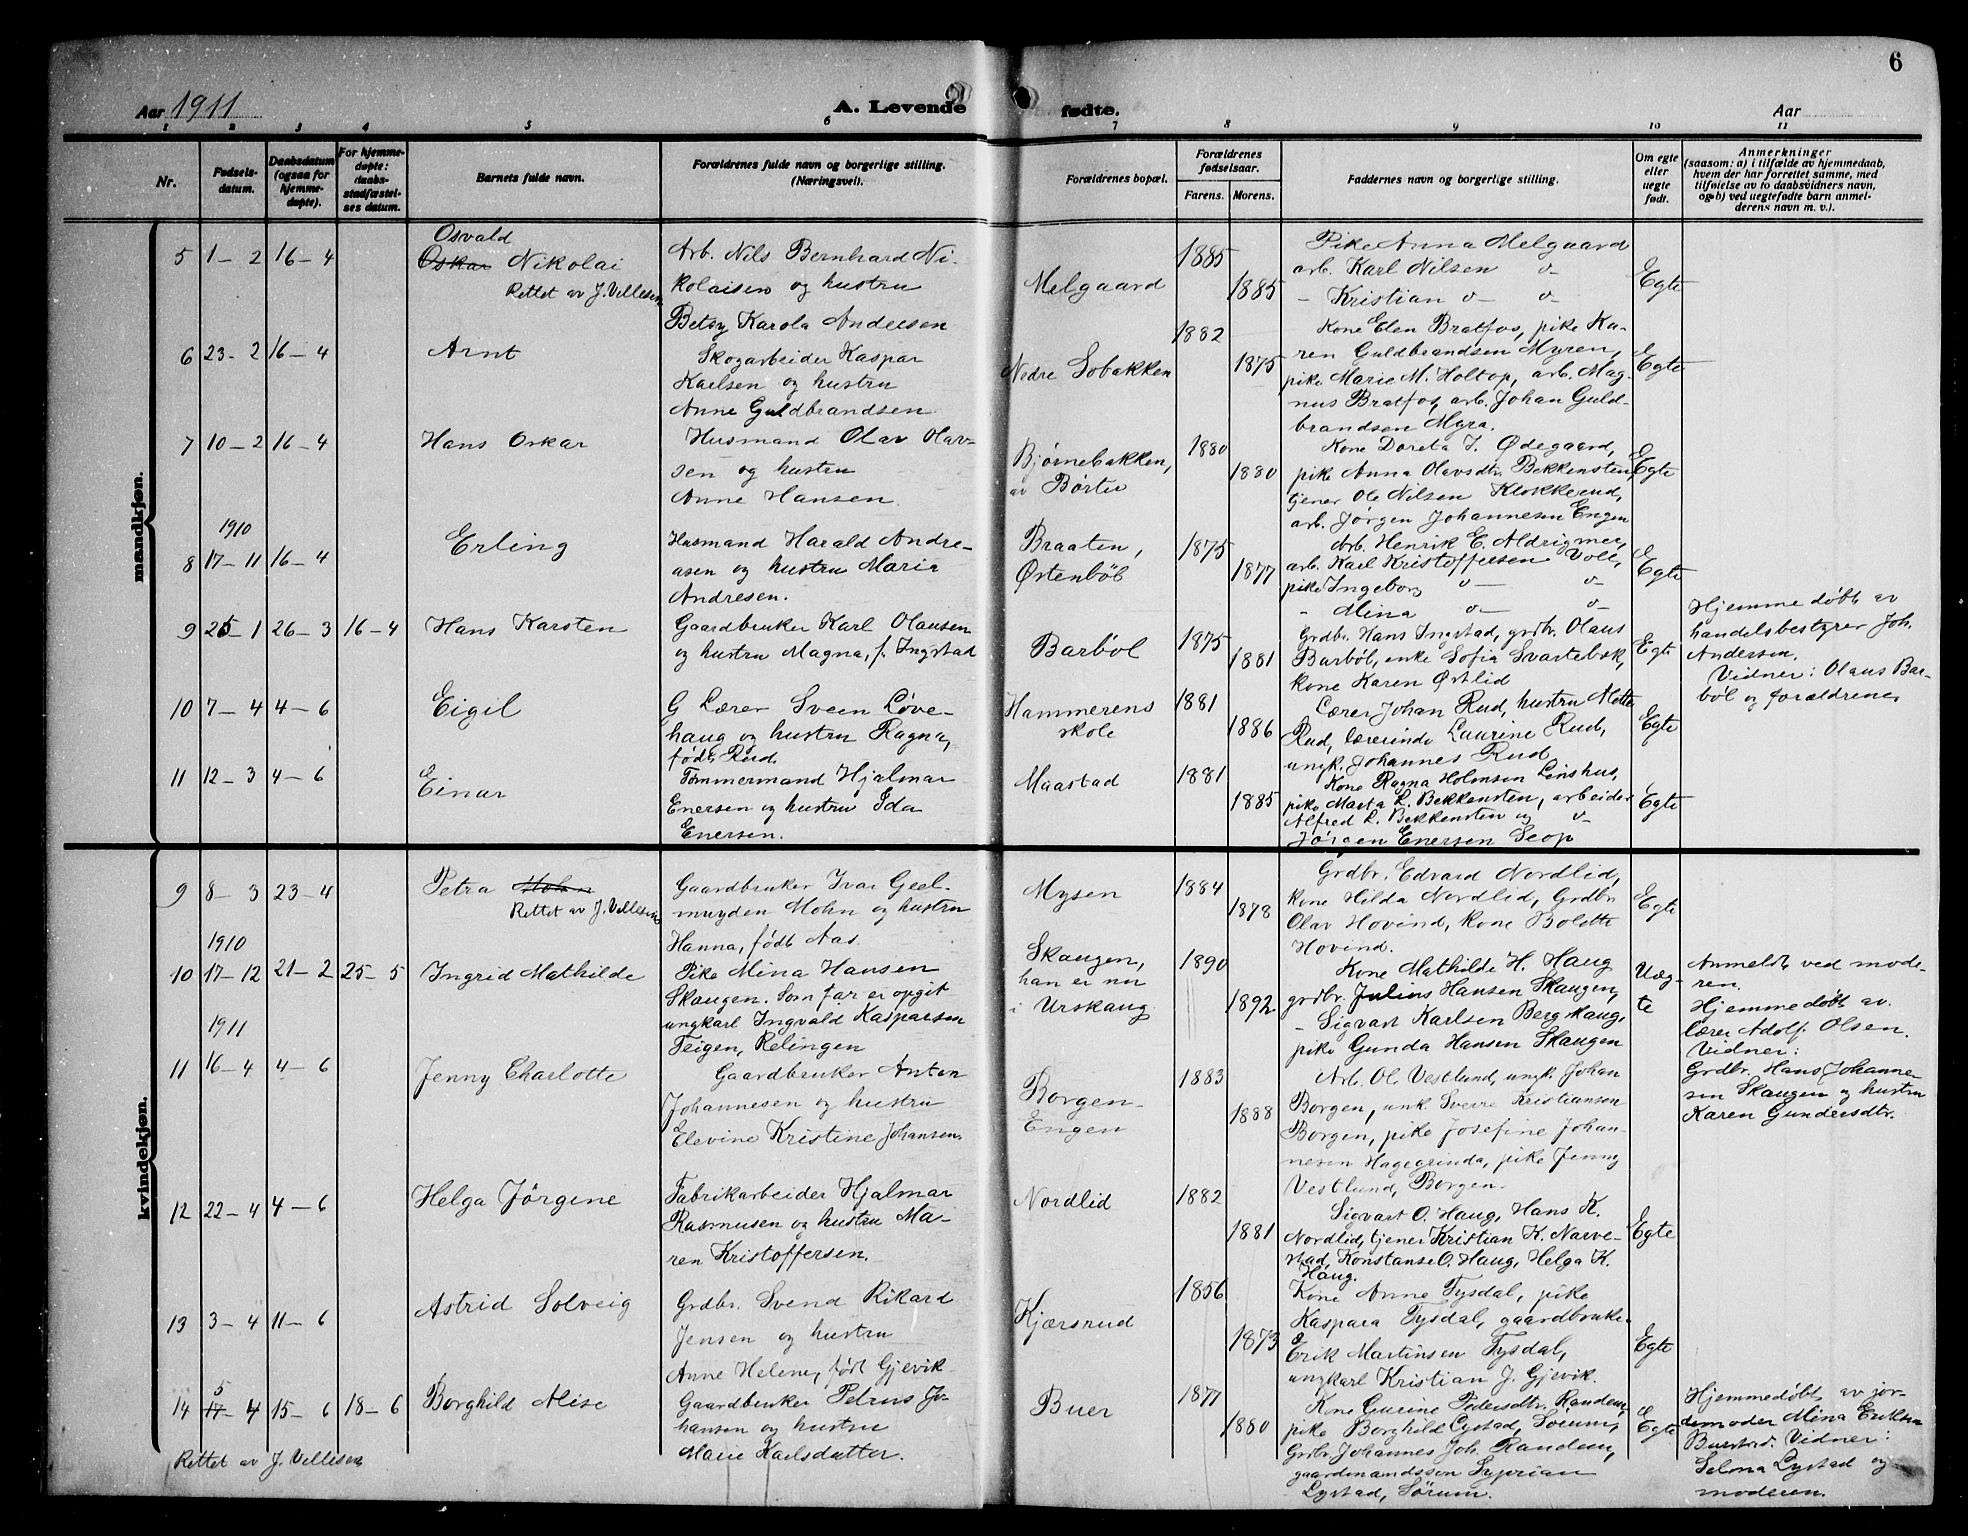 6
Aar 1911
A. Levende
fødte.
Aar
1 2 3 4 5 6 7 8 9 10 11
Nr.
Fødsels-
datum.
Daabsdatum
(ogsaa for
hjemme-
døpte).
For hjemme-
døpte:
daabs-
stadfæstel-
ses datum.
Barnets fulde navn.
Forældrenes fulde navn og borgerlige stilling.
(Næringsvei).
Forældrenes bopæl.
Forældrenes
fødselsaar.
Farens. Morens.
Faddernes navn og borgerlige stilling.
Om egte
eller
uegte
født.
Anmerkninger
(saasom: a) i tilfælde av hjemmedaab,
hvem der har forrettet samme, med
tilføielse av to daabsvidners navn,
og b) ved uegtefødte barn anmel-
derens navn m. v.).
mandkjøn.
5 1-2 16-4
Osvald
Oskar Nikolai
Rettet av J. Vellesen
Arb. Nils Bernhard Ni-
kolaisen og hustru
Betsy Karola Andersen
Melgaard
1885
1885
Pike Anna Melgaard
arb. Karl Nilsen o-
- Kristian o- o-
Egte
6 23-2 16-4
Arnt
Skogarbeider Kaspar
Karlsen og hustru
Anne Guldbrandsen
Nedre Sobakken
1882
1875
Kone Elen Bratfos, pike Ka-
ren Guldbrandsen Myren,
pike Marie M. Holtop, arb. Mag-
nus Bratfos, arb. Johan Guld-
brandsen Myra.
Egte
7 10-2 16-4
Hans Oskar
Husmand Olav Olav-
sen og hustru
Anne Hansen.
Bjørnebakken,
av Børter
1880
1880
Kone Doreta I. Ødegaard,
pike Anna Olavsdtr. Bekkensten,
tjener Ole Nilsen Klokkerud,
arb. Jørgen Johannesen Engen
Egte
1910
8 17-11 16-4
Erling
Husmand Harald Andre-
asen og hustru Maria
Andresen.
Braaten,
Østenbøb
1875
1877
Arb. Henrik E. Aldrigmer,
arb. Karl Kristoffersen Voll,
pike Ingeborg o- o-
- Mina o- o-
Egte
9 25-1 26-3 16-4
Hans Karsten
Gaardbruker Karl Olausen
og hustru Magna, f. Ingstad
Barbøl
1875
1881
Grdbr. Hans Ingstad, grdbr. Olaus
Barbøl, enke Sofia Svartebæk,
kone Karen Østlid
Egte
Hjemmedøbt av
handelsbestyrer Joh.
Andersen.
Vidner: Olaus Bar-
bøl og forældrene
10 7-4 4-6
Eigil
G Lærer Svein Løve-
haug og hustru Ragna,
født Rud.
Hammerens
skole
1881
1886
Lærer Johan Rud, hustru Mette
Rud, lærerinde Laurine Rud,
ungk. Johannes Rud
Egte
11 12-3 4-6
Einar
Tømmermand Hjalmar
Enersen og hustru Ida
Enersen.
Maastad
1881
1885
Kone Ragna Holmsen Linshus,
pike Marta L. Bekkensten, arbeider
Alfred L. Bekkensten og o-
Jørgen Enersen Seop
Egte
kvindekjøn.
9 8-3 23-4
Petra Mohn
Rettet av J. Vellesen
Gaardbruker Ivar Geel-
muyden Mohn og hustru
Hanna, født Aas.
Mysen
1884
1878
Grdbr. Edvard Nordlid,
kone Hilda Nordlid, Grdbr.
Olav Hovind, kone Bolette
Hovind.
Egte
1910
10 17-12 21-2 25-5
Ingrid Mathilde
Pike Mina Hansen
Skaugen. Som far er opgit
ungkarl Ingvald Kasparsen
Teigen, Relingen
Skaugen,
han er nu
i Urskaug
1890
1892
Kone Mathilde H. Haug
grdbr. Julius Hansen Skaugen,
- Sigvart Karlsen Bergskaug,
pike Gunda Hansen Skaugen
Uæg-
te
Anmeldt ved mode-
ren.
Hjemmedøbt av
lærer Adolf Olsen.
Vidner:
Grdbr. Hans Johanne-
sen Skaugen og hustru
Karen Gundersdtr.
1911
11 16-4 4-6
Jenny Charlotte
Gaardbruker Anton
Johannesen og hustru
Elevine Kristine Johansen
Borgen-
Engen
1883
1888
Arb. Ol. Vestlund, ungk. Johan
Borgen, unk Sverre Kristiansen
Borgen, pike Josefine Johan-
nesen Hagegrinda, pike Jenny
Vestlund, Borgen.
12 22-4 4-6
Helga Jørgine
Fabrikarbeider Hjalmar
Rasmusen og hustru Ma-
ren Kristoffersen.
Nordlid
1882
1881
Sigvart O. Haug, Hans K.
Nordlid, tjener Kristian K. Narve-
stad, Konstanse O. Haug, Helga K.
Haug.
Egte
13 3-4 11-6
Astrid Solveig
Grdbr. Svend Rikard
Jensen og hustru
Anne Helene, født Gjevik
Kjærsrud
1856
1873
Kone Anne Tysdal, pike
Kaspara Tysdal, gaardbruke-
Erik Martinsen Tysdal,
ungkarl Kristian J. Gjevik.
Egte
5
14 17-4 15-6 18-6
Borghild Alise
Gaardbruker Petrus Jo-
hansen og hustru
Marie Karlsdatter.
Buer
1877
1880
Kone Gurine Pedersdtr. Randem,
pike Borghild Lystad, Sørum,
Grdbr. Johannes Joh. Randem,
gaardmandssøn Syprian
Lystad, Sørum.
Egte
Hjemmedøbt av jor-
demoder Mina Eriksen
Buerstad. Vidner:
Selma Lystad og
moderen.
Rettet av J. Vellesen